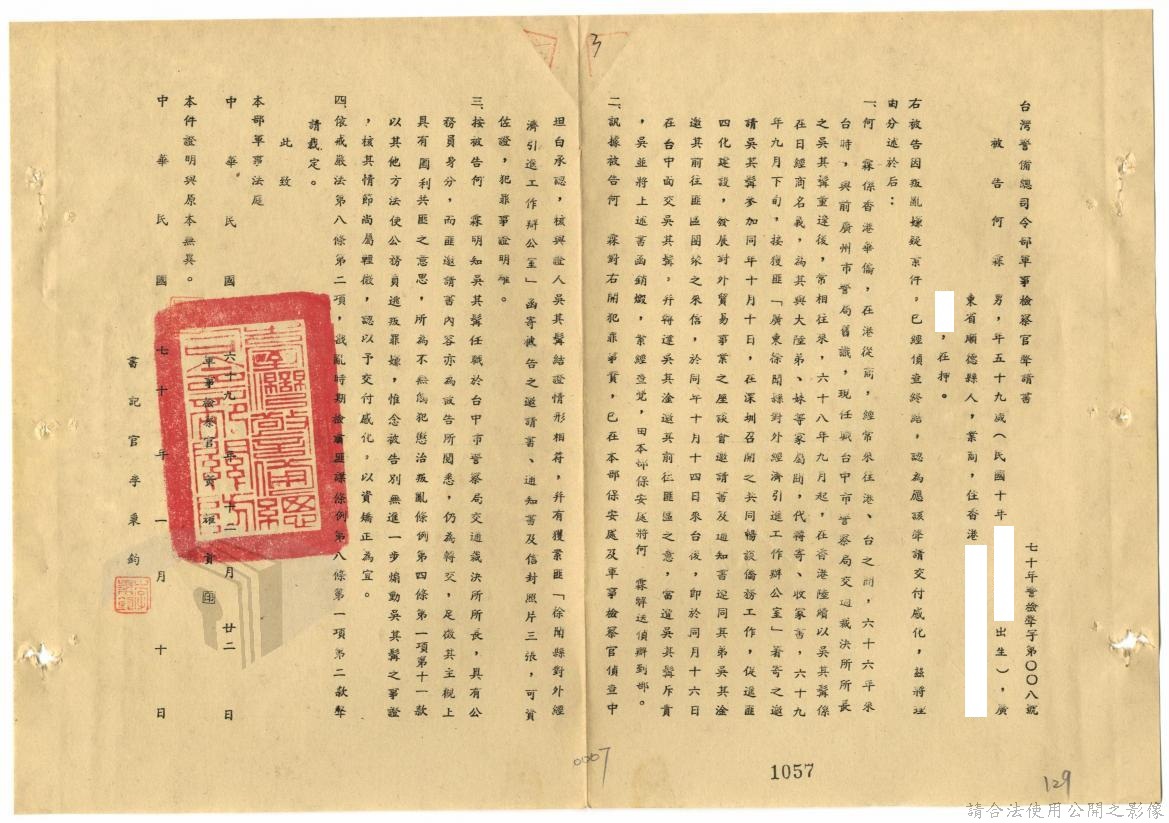 台灣警備總司令部軍事檢察官聲請書
七十年警檢聲字第〇〇八號
被告何霖 男,年五十九歲(民國十年
出生),廣
東省順德縣人,業商,住香港
,在押。
右被告因叛亂嫌疑案件。已經偵查終結,認為應該聲請交付感化,茲將理
由分述於后:
一、何 霖係香港華僑,在港從商,經常來往港、台之間,六十六年來
台時,與前廣州市警局舊識,現任職台中市警察局交通裁決所所長
之吳其髯重逢後,常相往來,六十八年九月起,在香港陸續以吳其髯係
在日經商名義,為其與大陸弟、妹等家屬間,代轉寄、收家書,六十九
年九月下旬,接獲匪「廣東徐聞縣對外經濟引進工作辦公室」著寄之邀
請吳其髯參加同年十月十日,在深圳召開之共同暢談僑務工作,促進匪
四化建設,發展對外貿易事業之座談會邀請書及通知書連同其弟吳其淦
邀其前往匪區團聚之來信,於同年十月十四日來台後,即於同月十六日
在台中面交吳其髯,幷轉達吳其淦邀其前往匪區之意,當遭吳其髯斥責
,吳並將上述書函銷燬,案經查覺,由本部保安處將何 霖解送偵辦到部。
二、訊據被告何 霖對右開犯罪事實,已在本部保安處及軍事檢察官偵查中
坦白承認,核與證人吳其髯結證情形相符,幷有獲案匪「徐聞縣對外經
濟引進工作辦公室」函寄被告之邀請書、通知書及信封照片三張,可資
佐證,犯罪事證明確。
三、按被告何 霖明知吳其髯任職於台中市警察局交通裁決所所長,具有公
務員身分,而匪邀請書內容亦為被告所閱悉,仍為轉交,足徵其主觀上
具有圖利共匪之意思,所為不無觸犯懲治叛亂條例第四條第一項第十一款
以其他方法使公務員逃叛罪嫌,惟念被告別無進一步煽動吳其髯之事證
,核其情節尚屬輕微,認以予交付感化,以資矯正為宜。
四、依戒嚴法第八條第二項,戡亂時期檢肅匪諜條例第八條第一項第二款聲
請裁定。
此致
本部軍事法庭
中華民國六十九年十二月廿二日
軍事檢察官
本件證明與原本無異。
中華民國七十年一月十日
書記官李秉鈞
3
0007
1057
129
請合法使用公開之影像